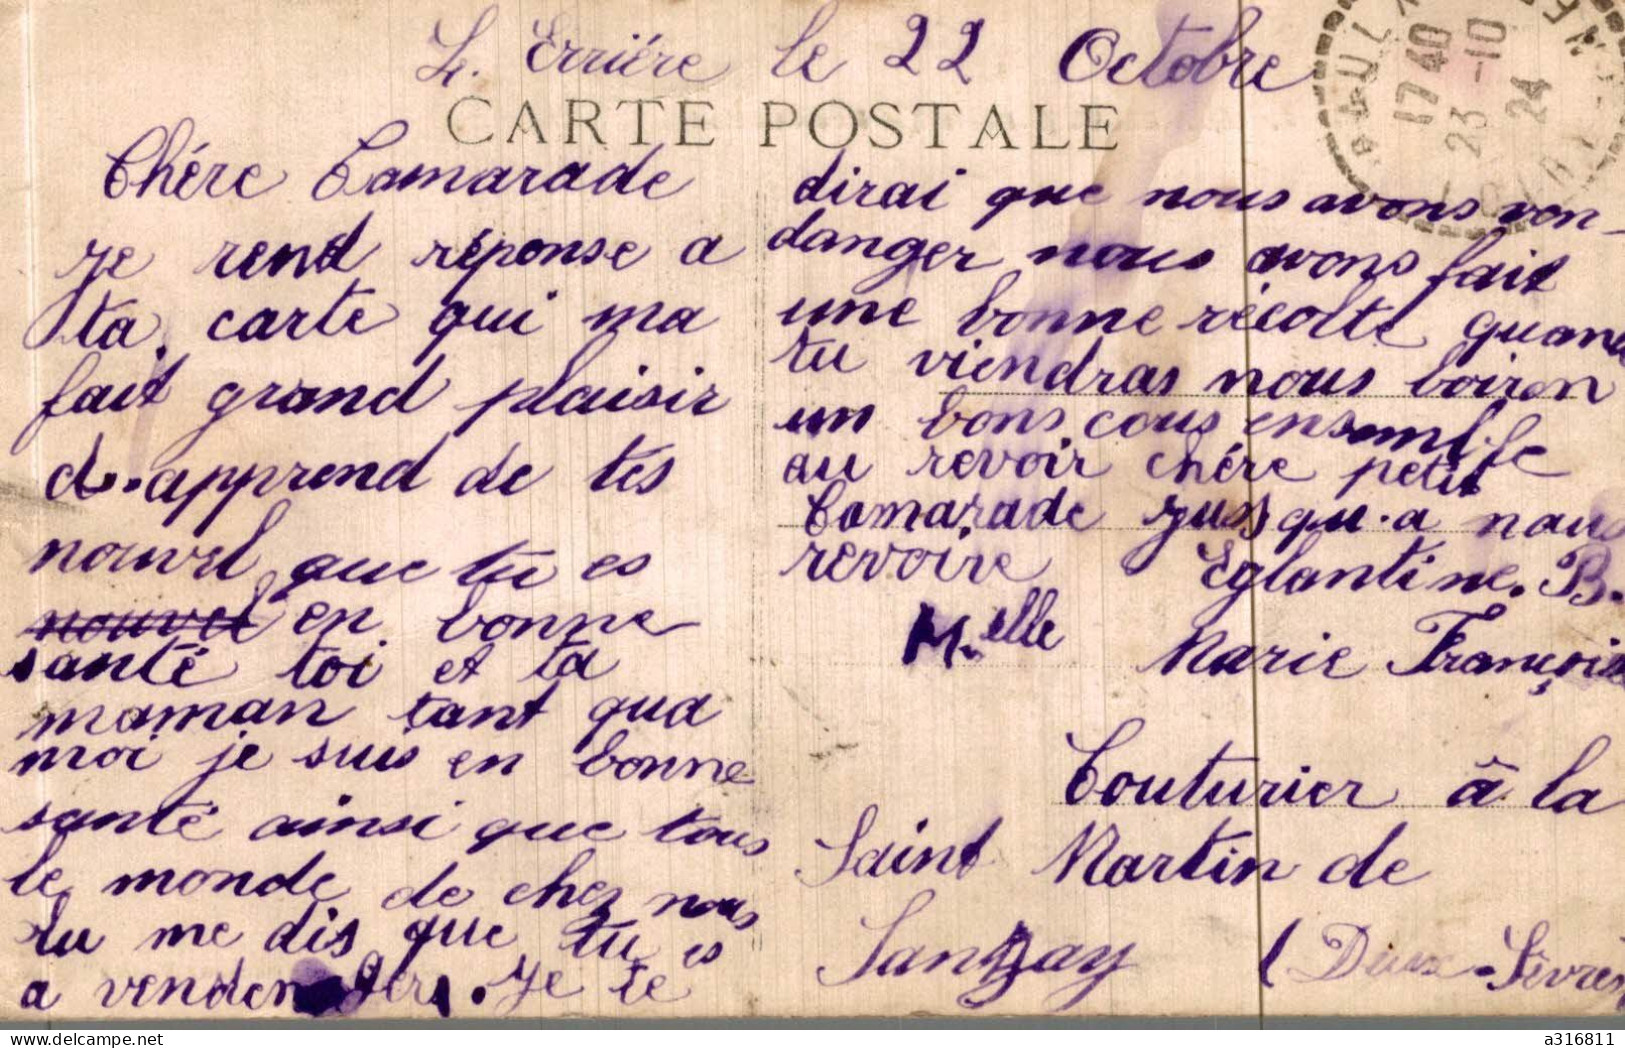 L. Errière le 22 Octobre
CARTE POSTALE
17 40
23 -10
24
Chére Camarade
Je rend réponse a
ta carte qui ma
fait grand plaisir
d.apprend de tes
nouvel que tu es
nouvel en bonne
santé toi et ta
maman tant qua
moi je suis en bonne
santé ainsi que tous
le monde de chez nous
tu me dis que tu es
a vendenger. Je te
dirai que nous avons ven-
danger nous avons fait
une bonne récolte quand
tu viendras nous boiron
un bons cous ensemble
au revoir chére petit
Camarade jusqu.a nous
revoire Eglantine. B.
M.elle Marie Françoise
Couturier â la
Saint Martin de
Sanzay (Deux-Sèvres
delcampe.net
a316811